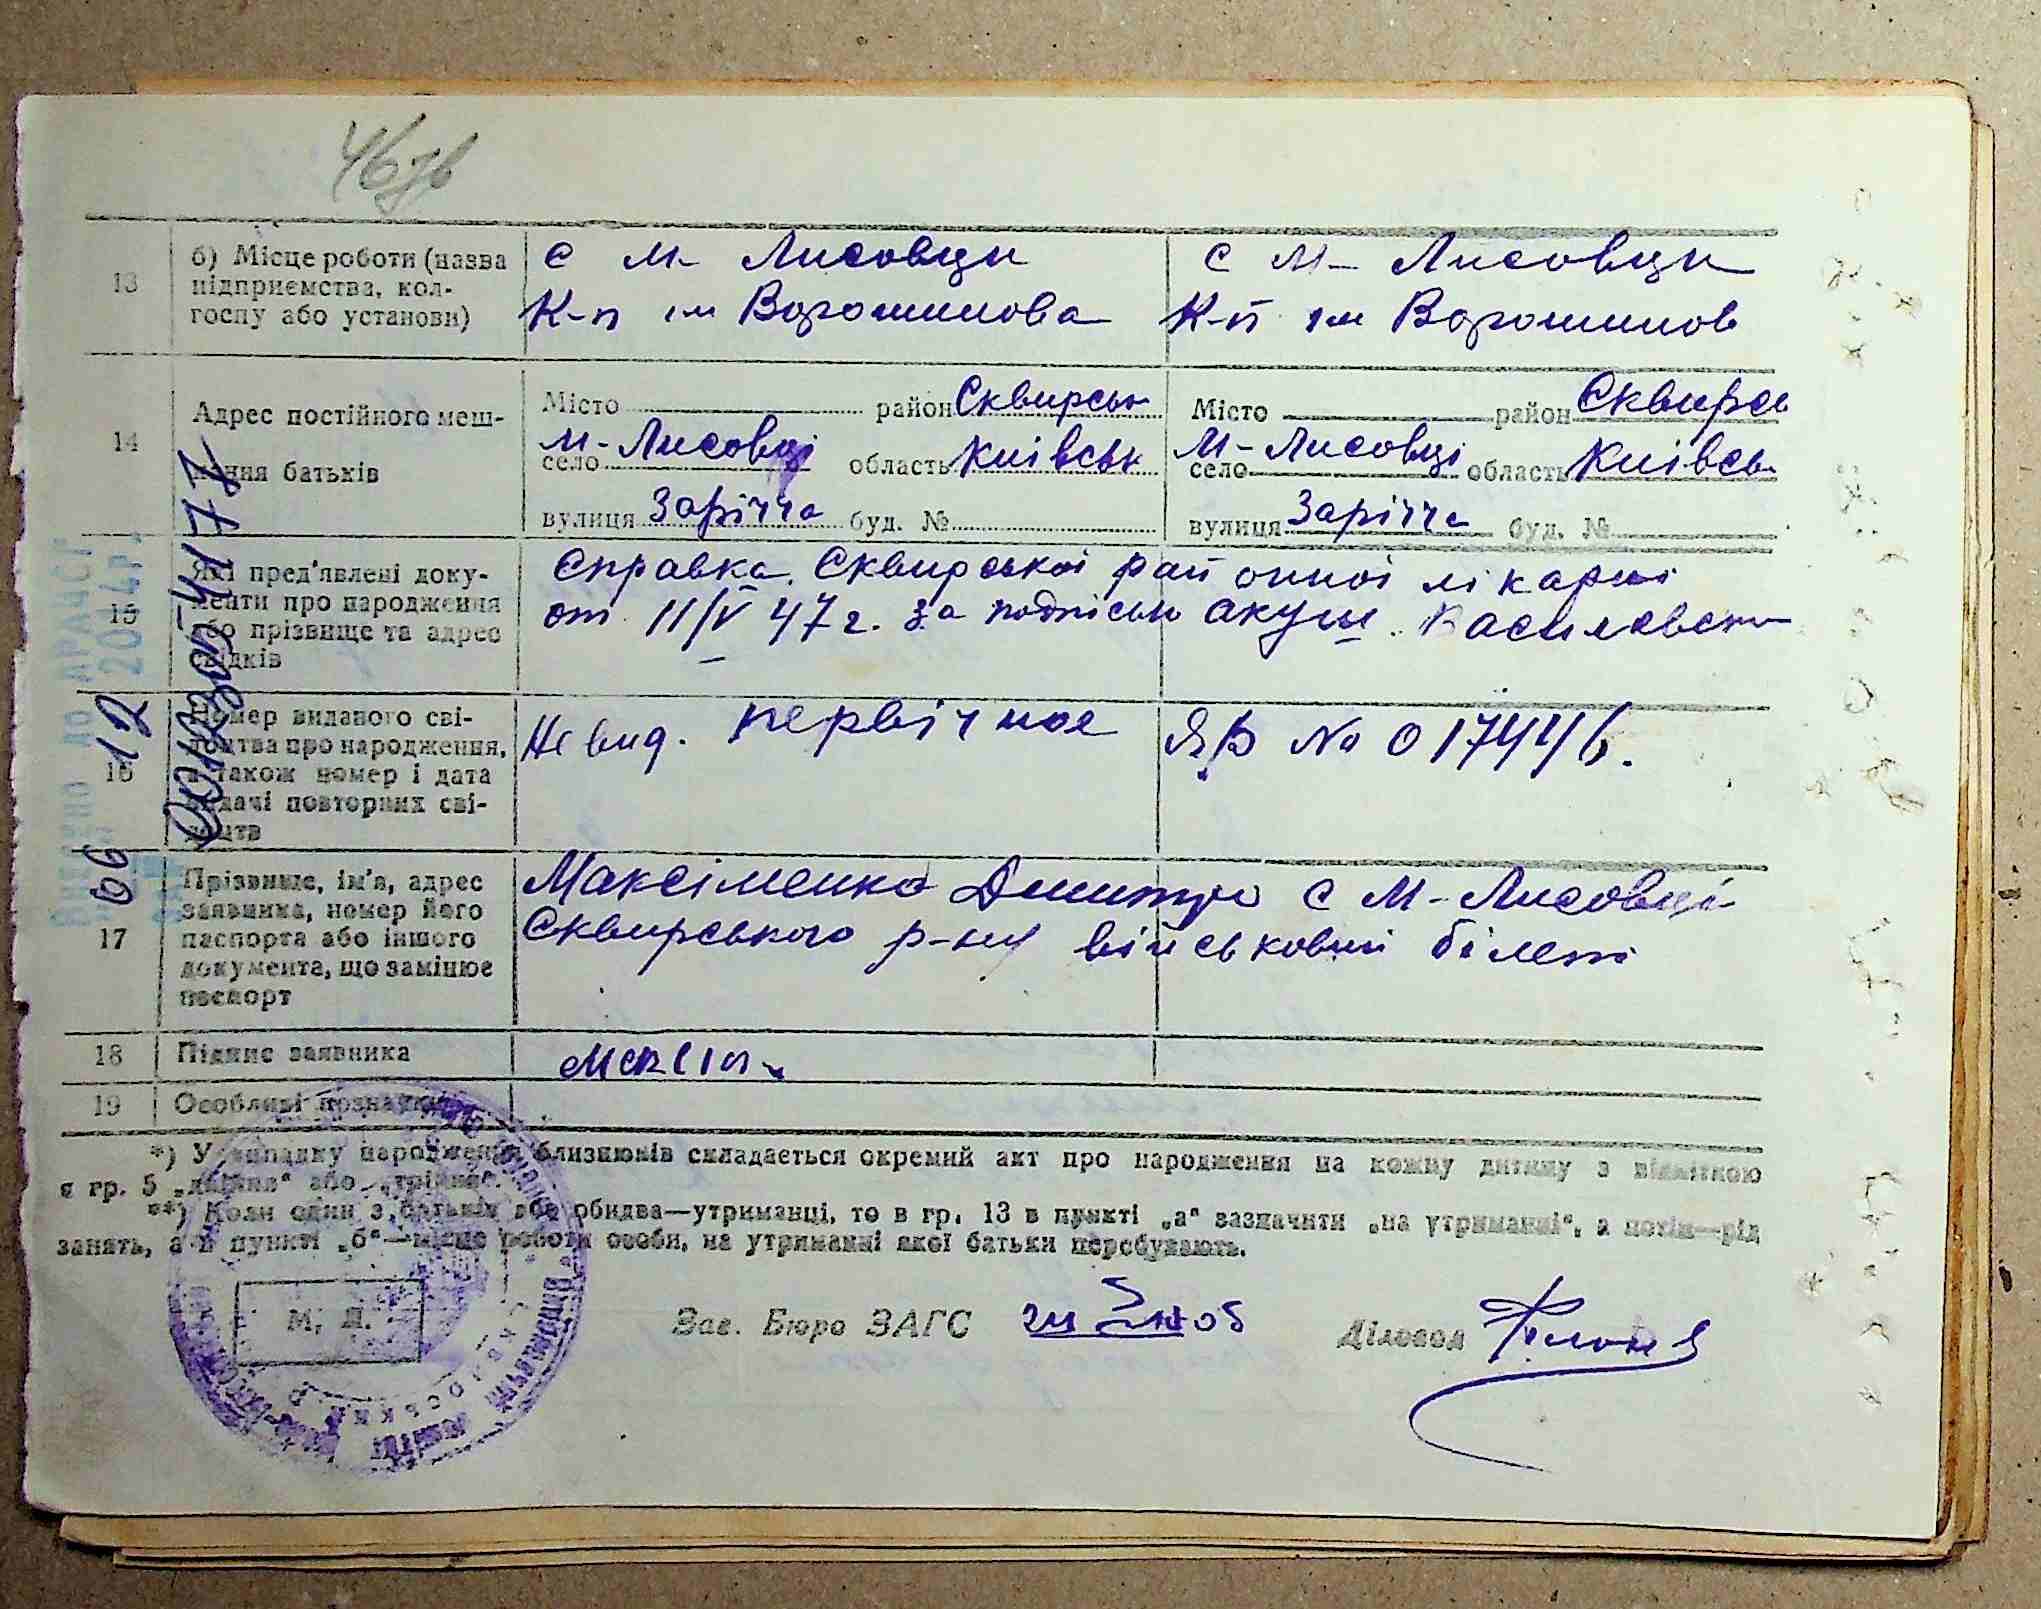 467в
13
б) Місце роботи (назва
підприємства, кол-
госпу або установи)
с М- Лисовци
К-п ім Ворошилова
с М- Лисовци
К-п ім Ворошилов
14
Адрес постійного меш-
кання батьків
Місто район Сквирськ
село М-Лисовці область Київськ
вулиця Заріччa буд. №
Місто район Сквирсь
село М-Лисовці область Київсь
вулиця Заріччa буд. №
15
Які пред'явлені доку-
менти про народження
або прізвище та адрес
свідків
Справка Сквирської районної лікарні
от 11/V 47 г. за подпісью акуш. Василевск
16
Номер виданого сві-
доцтва про народження,
а також номер і дата
видачі повторних сві-
доцтв
Не вид. первічное
ЯБ No 017441
17
Прізвище, ім'я, адрес
заявника, номер його
паспорта або іншого
документа, що замінює
паспорт
Максіменко Дмитро с М-Лисовці
Сквирського р-ну військовий білет
18
Підпис заявника
19
Особливі позначки
*) У випадку народження близнюків складається окремий акт про народження на кожну дитину з відміткою
в гр. 5 „двійня“ або „трійня“.
**) Коли один з батьків або обидва—утриманці, то в гр. 13 в пункті „а“ зазначити „на утриманні“, а потім—рід
занять, а в пункті „б“—місце роботи особи, на утриманні якої батьки перебувають.
М. П.
Зав. Бюро ЗАГС
Діловод
ВНЕСЕНО ДО ДРАЦСГ
06 12 2014р.